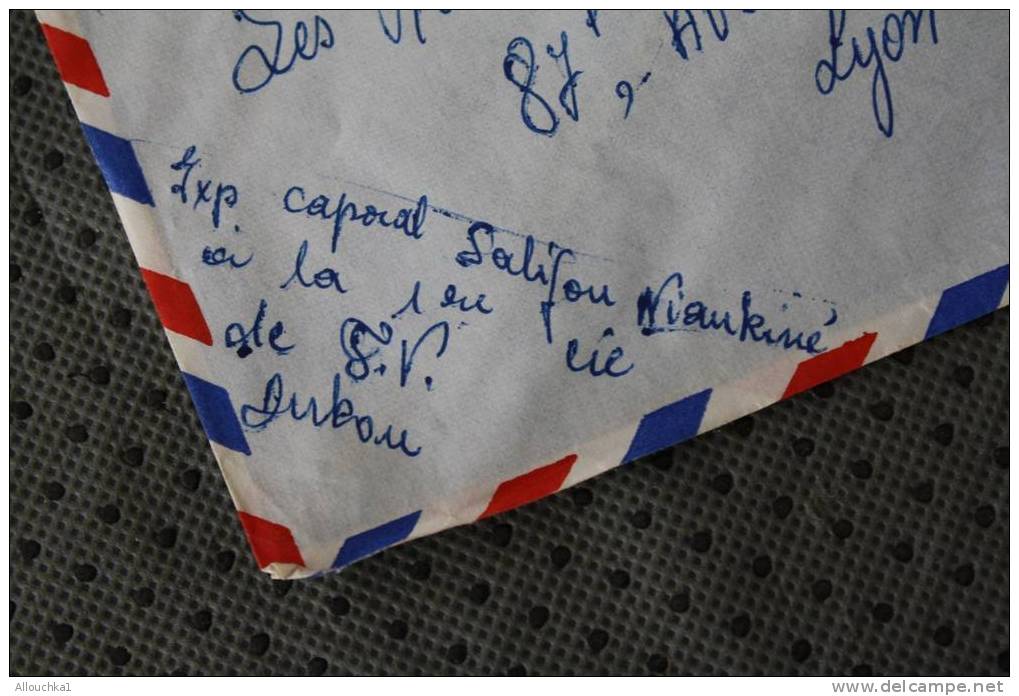 Les
87, Av
Lyon
Exp caporal Salifou Niankiné
à la 1er cie
de S.P.
Allouchka1
www.delcampe.net